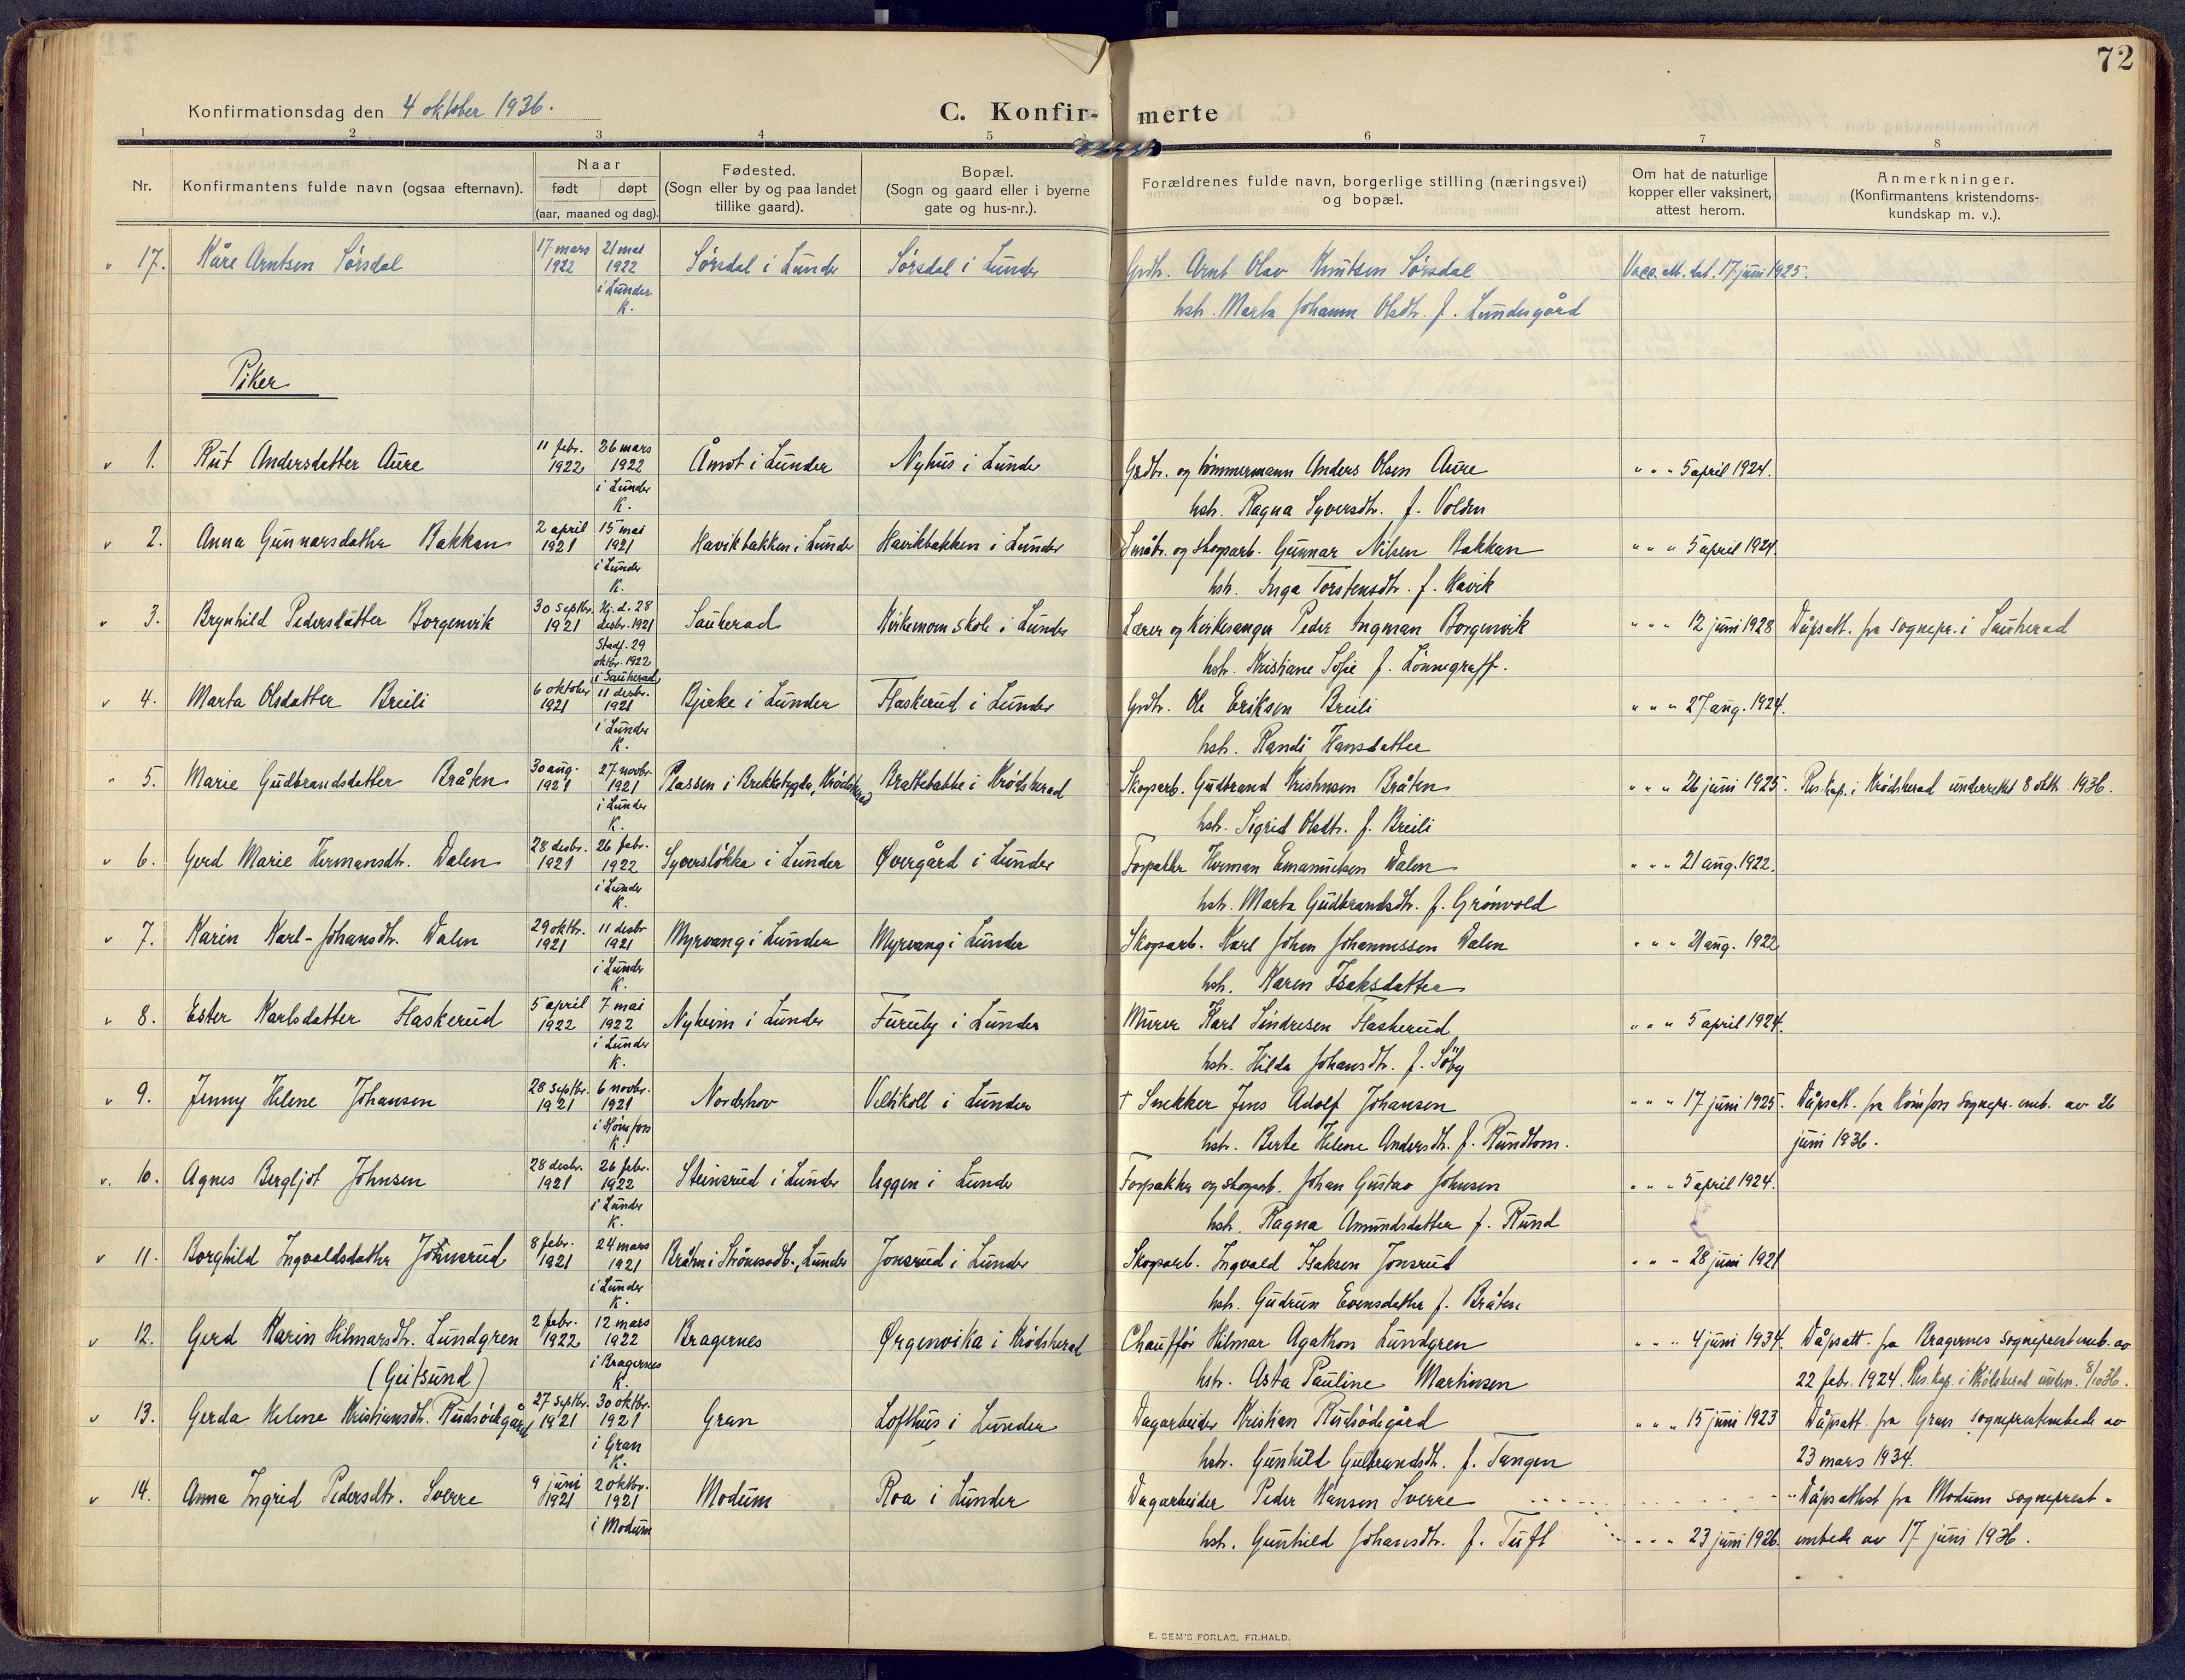 72
Konfirmationsdag den 4 oktober 1936.
C. Konfir- merte
1 2 3 4 5 6 7 8
Nr.
Konfirmantens fulde navn (ogsaa efternavn).
Naar
født døpt
(aar, maaned og dag).
Fødested.
(Sogn eller by og paa landet
tillike gaard).
Bopæl.
(Sogn og gaard eller i byerne
gate og hus-nr.).
Forældrenes fulde navn, borgerlige stilling (næringsvei)
og bopæl.
Om hat de naturlige
kopper eller vaksinert,
attest herom.
Anmerkninger.
(Konfirmantens kristendoms-
kundskap m. v.).
17. Kåre Arntsen Sørsdal 17 mars 1922 21 mai 1922 i Lunder K. Sørsdal i Lunder Sørsdal i Lunder Grdbr. Arnt Olav Knutsen Sørsdal Vacc. att. dat. 17 juni 1925.
hstr. Marta Johanne Olsdtr. f. Lundesgård
Piker
1. Rut Andersdatter Aure 11 febr. 1922 26 mars 1922 i Lunder K. Åmot i Lunder Nyhus i Lunder Grdbr. og tømmermann Anders Olsen Aure " " " 5 april 1924.
hstr. Ragna Syversdtr. f. Volden
2. Anna Gunnarsdatter Bakken 2 april 1921 15 mai 1921 i Lunder K. Havikbakken i Lunder Havikbakken i Lunder Småbr. og skogarb. Gunnar Nilsen Bakken " " " 5 april 1924.
hstr. Inga Torstensdtr. f. Havik
3. Brynhild Pedersdatter Borgenvik 30 septbr. 1921 Hj.d. 28 desbr. 1921 Stadf. 29 oktbr. 1922 i Sauherad Sauherad Kirkemoen skole i Lunder Lærer og kirkesanger Peder Ingman Borgenvik " " " 12 juni 1928 Dåpsatt. fra sognepr. i Sauherad
hstr. Kristiane Sofie f. Lønnegraff.
4. Marta Olsdatter Breili 6 oktober 1921 11 desbr. 1921 i Lunder K. Bjerke i Lunder Flaskerud i Lunder Grdbr. Ole Eriksen Breili " " " 27 aug. 1924.
hstr. Randi Hansdatter
5. Marie Gudbrandsdatter Bråten 30 aug. 1921 27 novbr. 1921 i Lunder K. Plassen i Brekkebygda, Krødsherad Brattebakke i Krødsherad Skogarb. Gudbrand Kristensen Bråten " " " 26 juni 1925. Res.kap. i Krødsherad underrettet 8 oktbr. 1936.
hstr. Sigrid Olsdtr. f. Breili
6. Gerd Marie Hermansdtr. Dalen 28 desbr. 1921 26 febr. 1922 i Lunder K. Syversløkka i Lunder Øvergård i Lunder Forpakter Herman Emanuelsen Dalen " " " 21 aug. 1922.
hstr. Marta Gudbrandsdtr. f. Grønvold
7. Karin Karl-Johansdtr. Dalen 29 oktbr. 1921 11 desbr 1921 i Lunder K. Myrvang i Lunder Myrvang i Lunder Skogarb. Karl Johan Johannessen Dalen " " " 21 aug. 1922
hstr. Karen Isaksdatter
8. Ester Karlsdatter Flaskerud 5 april 1922 7 mai 1922 i Lunder K. Nyheim i Lunder Furuly i Lunder Murer Karl Sindresen Flaskerud " " " 5 april 1924.
hstr. Hilda Johansdtr. f. Söby
9. Jenny Helene Johansen 28 septbr. 1921 6 novbr. 1921 i Hønefoss K. Norderhov Veltikoll i Lunder † Snekker Jens Adolf Johansen " " " 17 juni 1925. Dåpsatt. fra Hønefoss sognepr. emb. av 26
hstr. Berte Helene Andersdtr. f. Rundtom. juni 1936.
10. Agnes Bergljot Johnsen 28 desbr. 1921 26 febr. 1922 i Lunder K. Steinsrud i Lunder Uggen i Lunder Forpakter og skogarb. Johan Gustav Johnsen " " " 5 april 1924.
hstr. Ragna Amundsdatter f. Rund
11. Borghild Ingvaldsdatter Jonsrud 8 febr. 1921 24 mars 1921 i Lunder K. Bråten i Strømsodb., Lunder Jonsrud i Lunder Skogarb. Ingvald Isaksen Jonsrud " " " 28 juni 1921
hstr. Gudrun Evensdatter f. Bråten
12. Gerd Karin Hilmarsdtr. Lundgren 2 febr. 1922 12 mars 1922 i Bragernes K. Bragernes Ørgenvika i Krødsherad Chauffør Hilmar Agathon Lundgren " " " 4 juni 1934. Dåpsatt. fra Bragernes sogneprestemb. av
(Geitsund) hstr. Asta Pauline Martinsen 22 febr. 1924. Res.kap. i Krødsherad underr. 8/10 36.
13. Gerda Helene Kristiansdtr. Rudsødegård 27 septbr. 1921 30 oktbr. 1921 i Gran K. Gran Lofthus i Lunder Dagarbeider Kristian Rudsødegård " " " 15 juni 1923 Dåpsatt. fra Gran sogneprestembede av
hstr. Gunhild Gulbrandsdtr. f. Tangen 23 mars 1934.
14. Anna Ingrid Pedersdtr. Sverre 9 juni 1921 2 oktbr. 1921 i Modum Modum Roa i Lunder Dagarbeider Peder Hansen Sverre Dåpsattest fra Modum sogneprest-
hstr. Gunhild Johansdtr. f. Tuft " " " 23 juni 1926. embede av 17 juni 1936.
E. SEM'S FORLAG, FR.HALD.